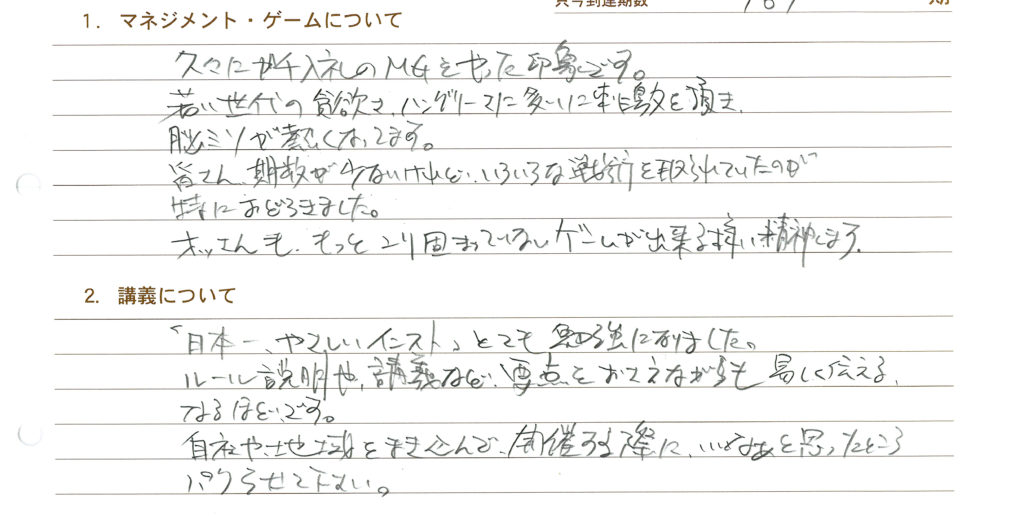 只今到達期数 167 期
1. マネジメント・ゲームについて
久々にガチ入札のMGをやった印象です。
若い世代の貪欲さ、ハングリーさに多いに刺激を頂き、
脳ミソが熱くなってます。
皆さん、期数が少ないけれど、いろいろな戦術を取られていたのが
特におどろきました。
オッさんも、もっとこり固まっていないゲームが出来る様に精神します。
2. 講義について
「日本一、やさしいインスト」とても勉強になりました。
ルール説明や、講義など、要点をおさえながらも易しく伝える、
なるほど、です。
自社や、地域をまき込んで、開催する際に、いいなぁと思ったところ
パクらせて下さい。